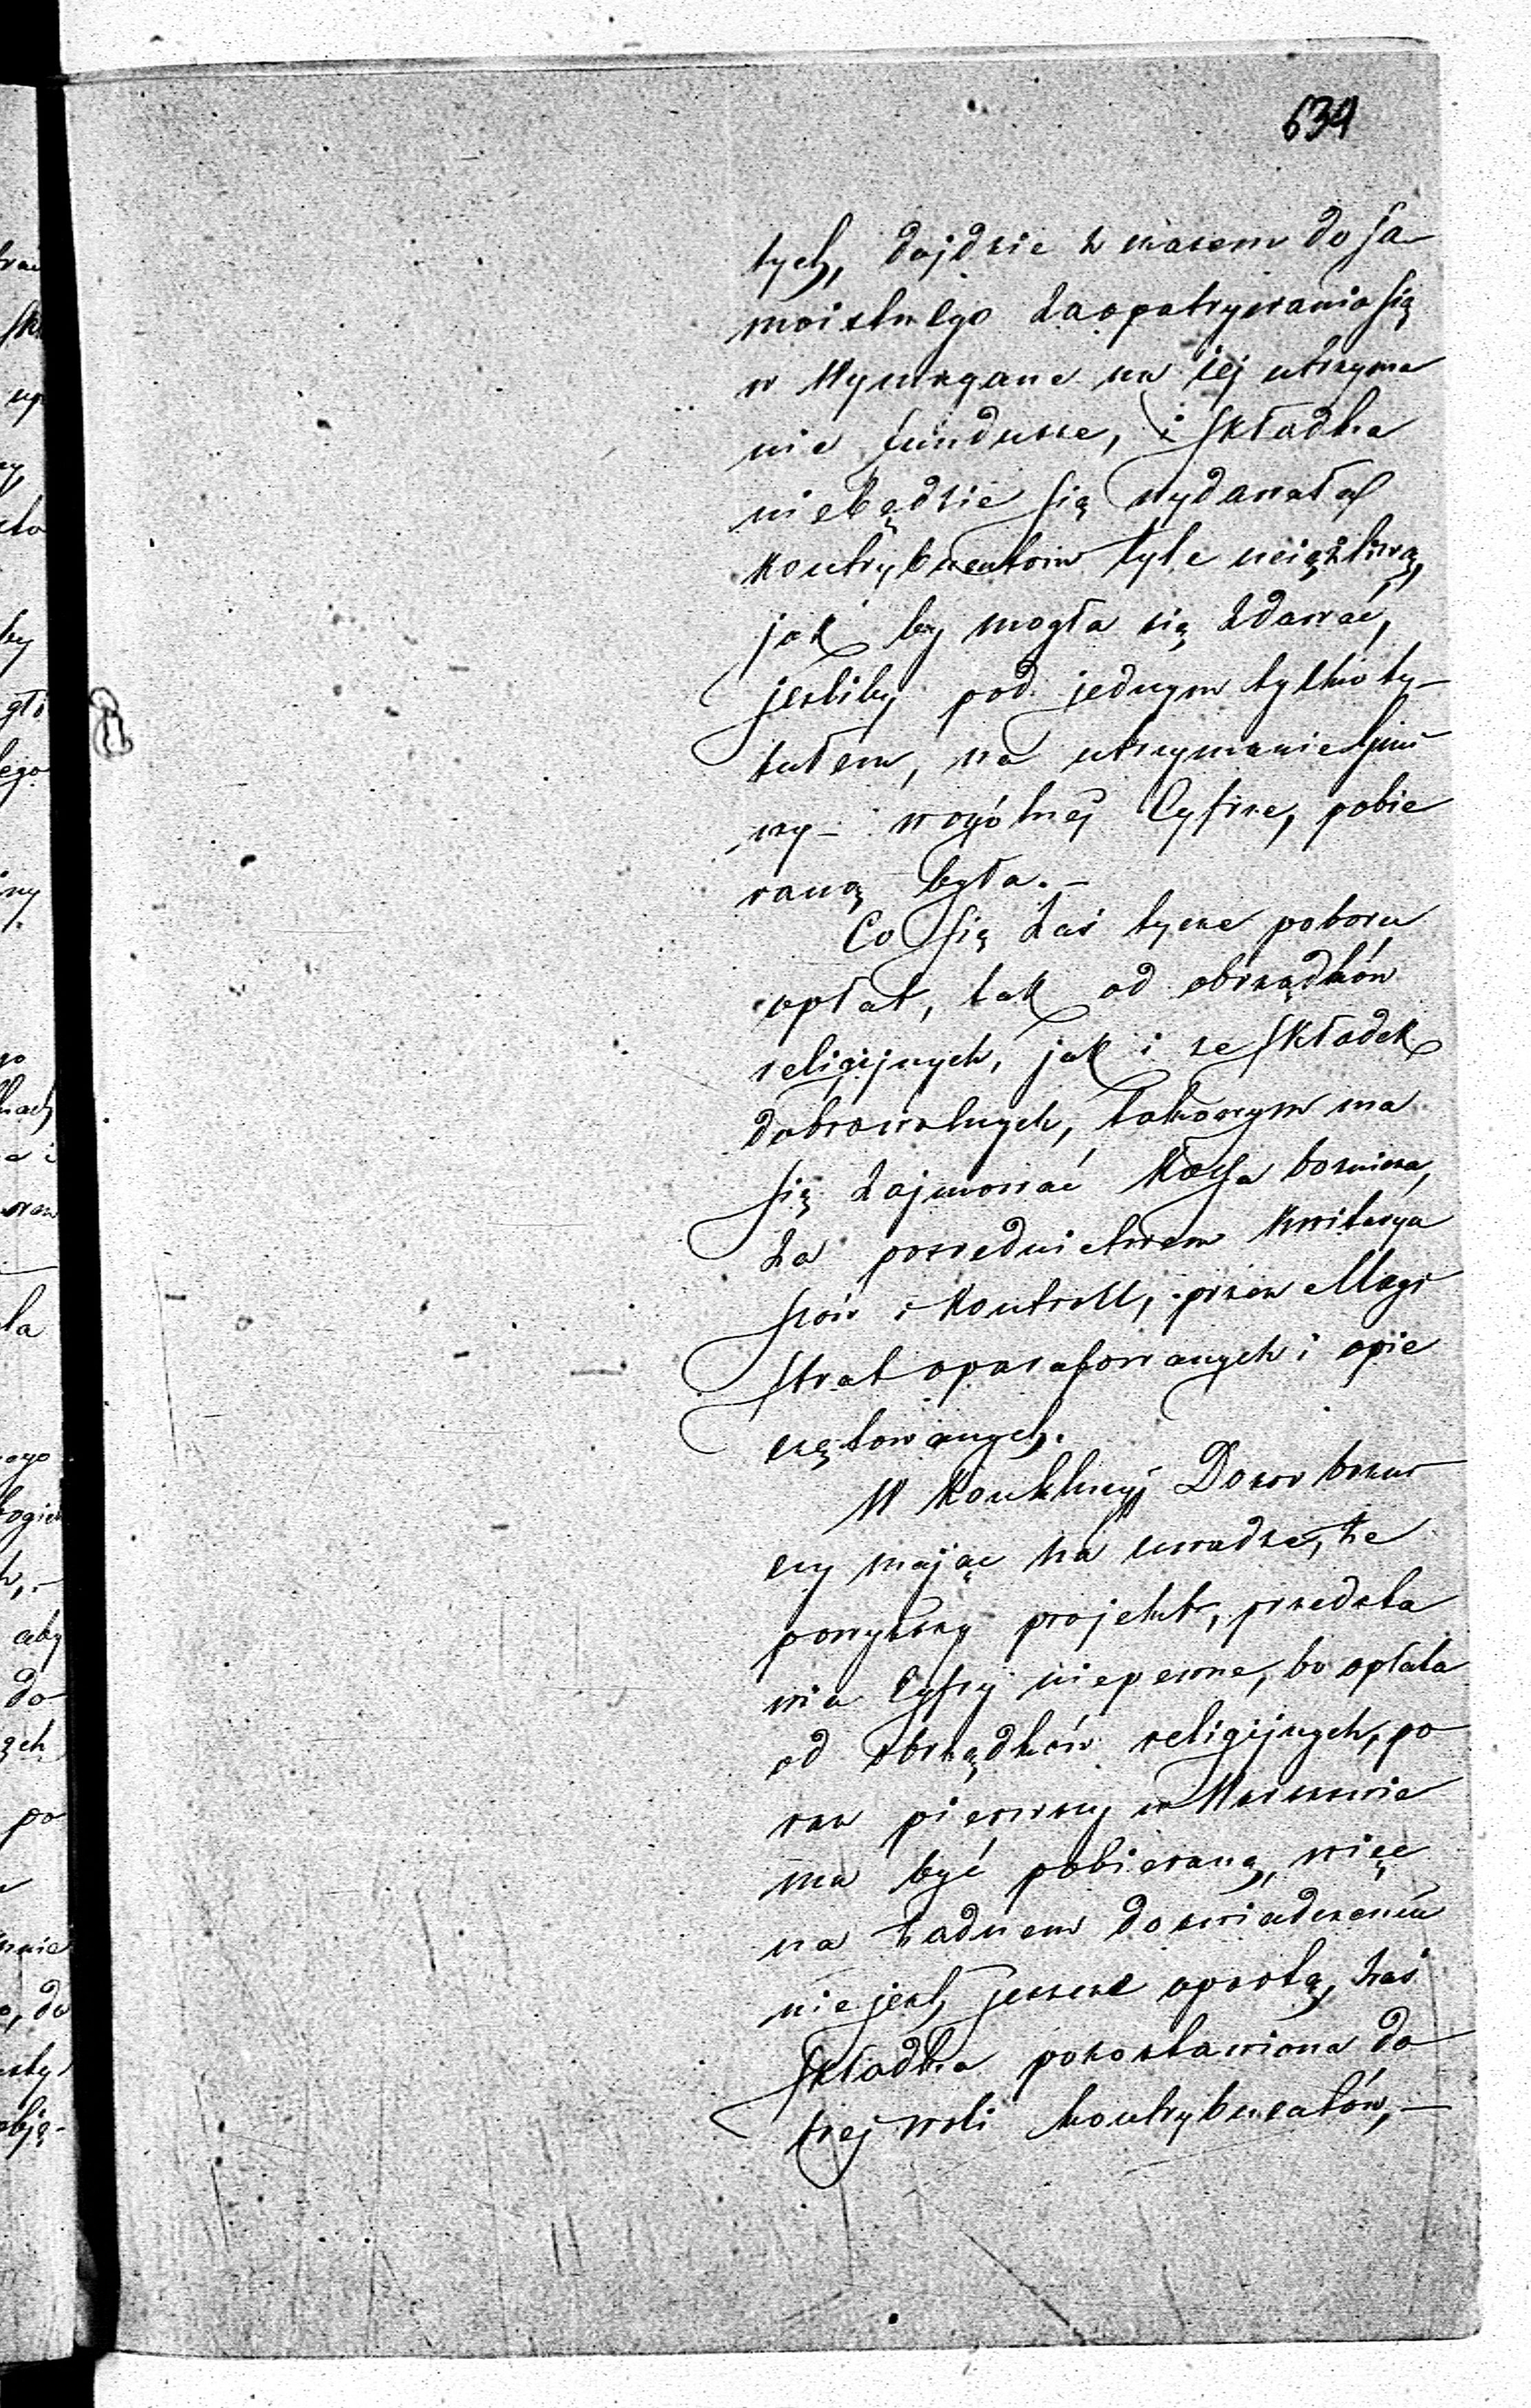 634
tych, dojdzie z czasem do sa
moistnego zaopatrywania się
w wymagane na jej utrzyma
nie fundusze, i składka
niebędzie się wydawała
kontrybuentom tyle uciążliwą,
jak by mogła się zdawać,
jeśliby pod jednym tylko ty-
tułem, na utrzymanie gmi
ny - wogólnej cyfrze, pobie
raną była. -
Co się zaś tycze poboru
opłat, tak od obrządków
religijnych, jak i ze składek
dobrowolnych, takowym ma
się zajmować Kassa bożnicza,
za pośrednictwem kwitaryu
szów i kontroll, przez Magi
strat oparafowanych i opie
czętowanych.
W konkluzyj Dozór bożni
czy mając na uwadze, że
powyższy projekt, przedsta
wia cyfry niepewne, bo opłata
od obrządków religijnych, po
raz pierwszy w Warszawie
ma być pobieraną, więc
na żadnem doświadczeniu
nie jest jeszcze opartą, zaś
składka pozostawiona do
brej woli kontrybuentów, -